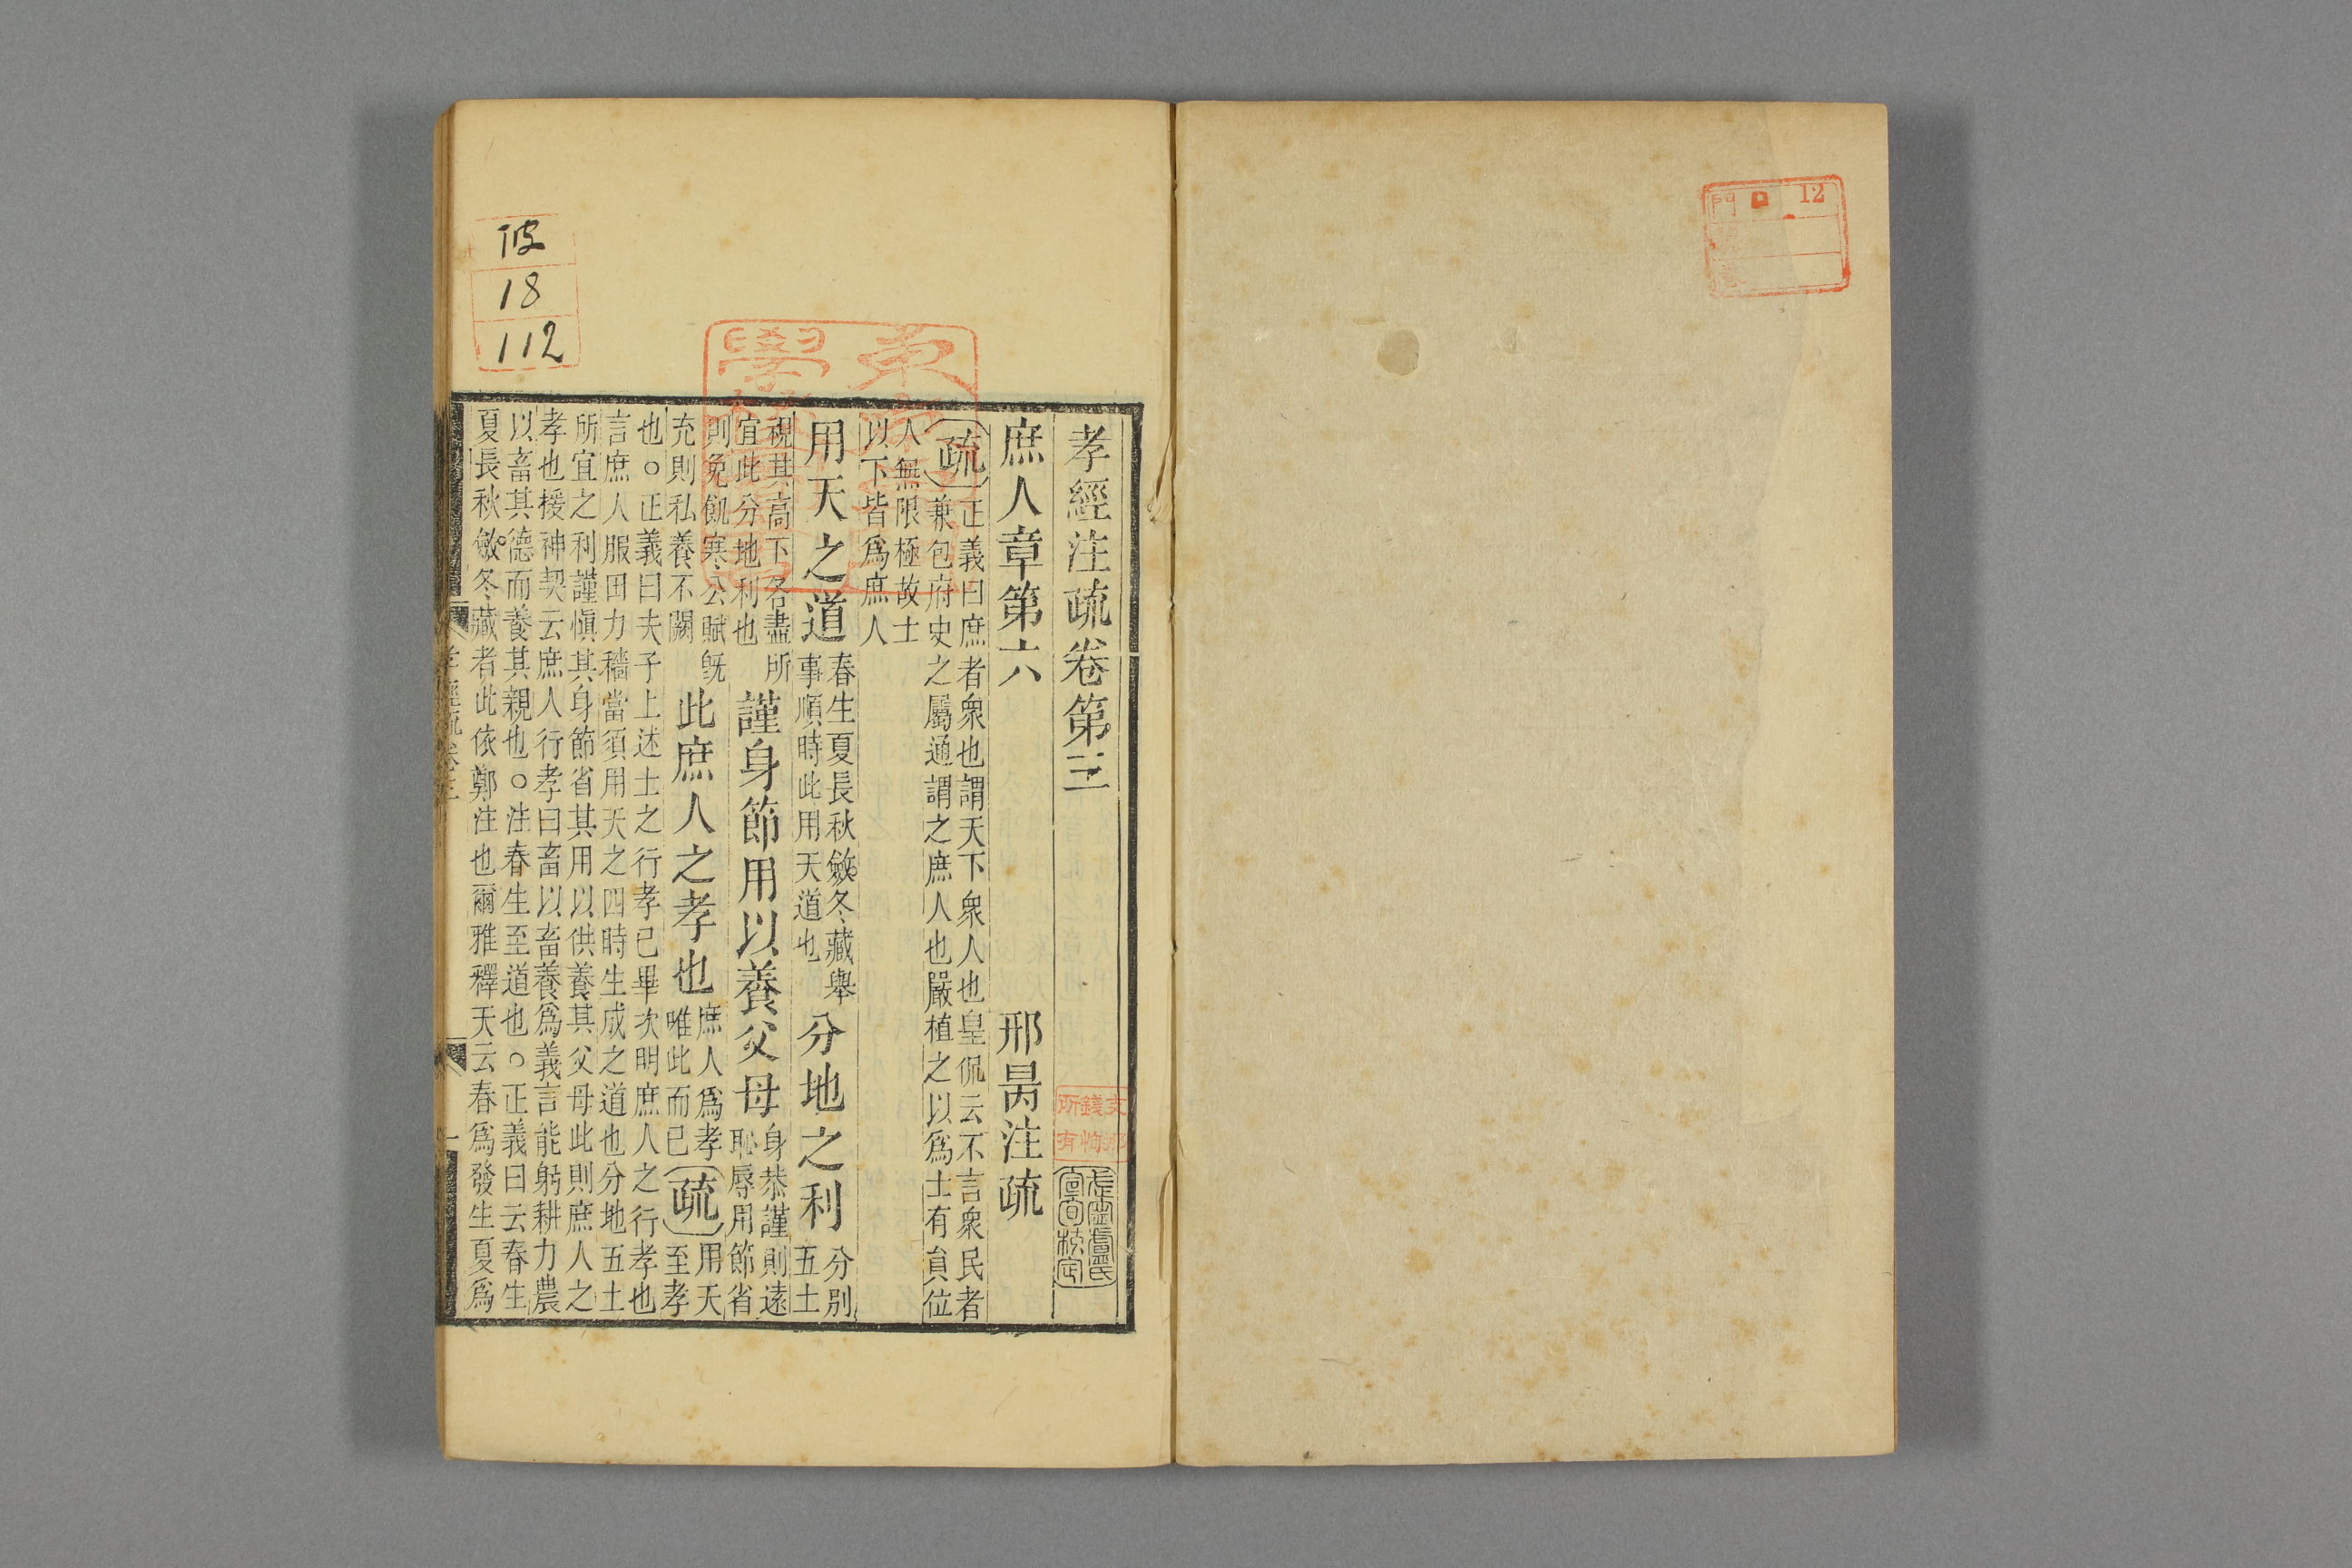 12
門
孝經注疏卷第三
庶人章第六
邢昺注疏
疏
正義曰庶者衆也謂天下衆人也皇侃云不言衆民者
兼包府史之屬通謂之庶人也嚴植之以爲士有負位
人無限極故士
以下皆爲庶人
用天之道
春生夏長秋斂冬藏舉
事順時此用天道也
分地之利
分別五土
視其高下各盡所
宜此分地利也
謹身節用以養父母
身恭謹則遠
恥辱用節省
則免飢寒公賦旣
充則私養不闕
此庶人之孝也
庶人爲孝
唯此而已
疏
用天
至孝
也○正義曰夫子上述士之行孝已畢次明庶人之行孝也
言庶人服田力穡當須用天之四時生成之道也分地五土
所宜之利謹愼其身節省其用以供養其父母此則庶人之
孝也援神契云庶人行孝曰畜以畜養爲義言能躬耕力農
以畜其德而養其親也○注春生至道也○正義曰云春生
夏長秋斂冬藏者此依鄭注也爾雅釋天云春爲發生夏爲
18
112